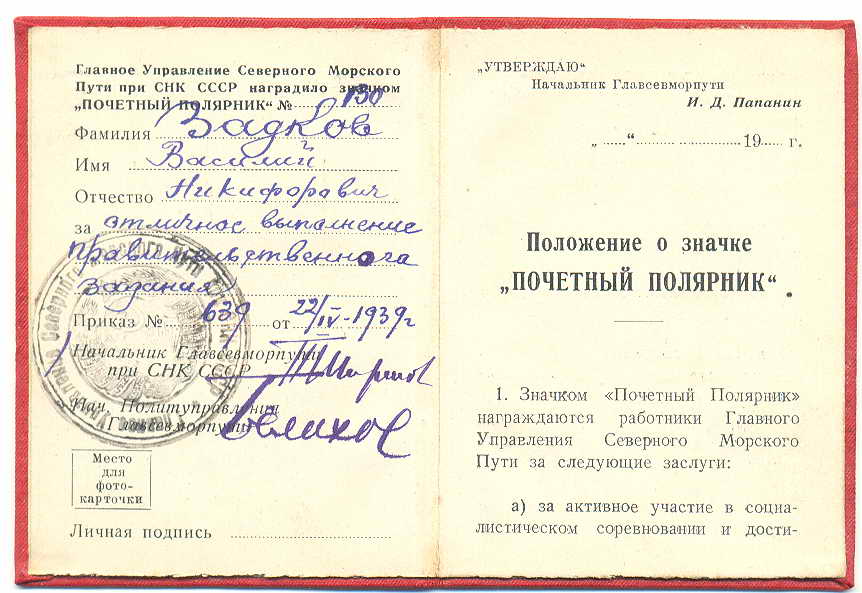 Главное Управление Северного Морского
Пути при СНК СССР наградило значком
„ПОЧЕТНЫЙ ПОЛЯРНИК“ № 130
Фамилия Задков
Имя Василий
Отчество Никифоравич
за отличное выпалнение
правительственного
задания
Приказ № 639 от 22/IV-1939г
Начальник Главсевморпути
при СНК СССР
Нач. Политуправления
Главсевморпути
Место
для
фото-
карточки
Личная подпись
„УТВЕРЖДАЮ“
Начальник Главсевморпути
И. Д. Папанин
„ “ 19 г.
Положение о значке
„ПОЧЕТНЫЙ ПОЛЯРНИК“.
1. Значком «Почетный Полярник»
награждаются работники Главного
Управления Северного Морского
Пути за следующие заслуги:
а) за активное участие в социа-
листическом соревновании и дости-